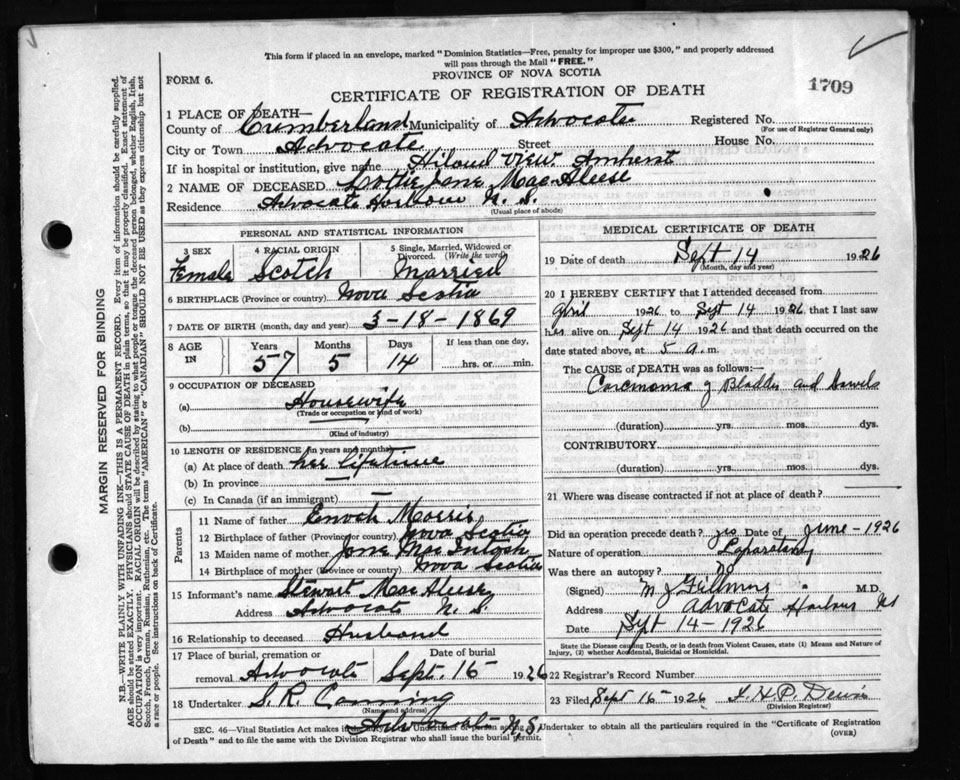 This form if placed in an envelope, marked "Dominion Statistics—Free, penalty for improper use $300," and properly addressed
will pass through the Mail "FREE."
FORM 6.
PROVINCE OF NOVA SCOTIA
1709
CERTIFICATE OF REGISTRATION OF DEATH
1 PLACE OF DEATH—
County of Cumberland Municipality of Advocate Registered No.
(For use of Registrar General only)
City or Town Advocate Street House No.
If in hospital or institution, give name Hiland View Amherst
2 NAME OF DECEASED Lottie Jane MacAleese
Residence Advocate Harbour N.S.
(Usual place of abode)
PERSONAL AND STATISTICAL INFORMATION
3 SEX Female
4 RACIAL ORIGIN Scotch
5 Single, Married, Widowed or Divorced. (Write the word) Married
6 BIRTHPLACE (Province or country) Nova Scotia
7 DATE OF BIRTH (month, day and year) 3-18-1869
8 AGE IN Years 57 Months 5 Days 14 If less than one day, hrs. or min.
9 OCCUPATION OF DECEASED
(a) Housewife
(Trade or occupation or kind of work)
(b)
(Kind of industry)
10 LENGTH OF RESIDENCE (in years and months)
(a) At place of death her lifetime
(b) In province —
(c) In Canada (if an immigrant) —
Parents
11 Name of father Enoch Morris
12 Birthplace of father (Province or country) Nova Scotia
13 Maiden name of mother Jane MacIntosh
14 Birthplace of mother (Province or country) Nova Scotia
15 Informant's name Stewart MacAleese
Address Advocate N.S.
16 Relationship to deceased Husband
17 Place of burial, cremation or removal Advocate Date of burial Sept. 16- 1926
18 Undertaker S. R. Canning
(Name and address)
Advocate N.S.
MEDICAL CERTIFICATE OF DEATH
19 Date of death Sept 14 1926
(Month, day and year)
20 I HEREBY CERTIFY that I attended deceased from
April 1926 to Sept 14 1926 that I last saw
her alive on Sept 14 1926 and that death occurred on
date stated above, at 5 a.m.
The CAUSE OF DEATH was as follows:—
Carcinoma of Bladder and Bowels
(duration) yrs. mos. dys.
CONTRIBUTORY.
(duration) yrs. mos. dys.
21 Where was disease contracted if not at place of death?
Did an operation precede death? yes Date of June-1926
Nature of operation Laparotomy
Was there an autopsy? no
(Signed) M J Fillmore M.D.
Address Advocate Harbour NS
Date Sept 14-1926
State the Disease causing Death, or in death from Violent Causes, state (1) Means and Nature of
Injury, (2) whether Accidental, Suicidal or Homicidal.
22 Registrar's Record Number
23 Filed Sept 16 1926
(Division Registrar)
SEC. 46—Vital Statistics Act makes it duty of Undertaker or person acting as Undertaker to obtain all the particulars required in the "Certificate of Registration
of Death" and to file the same with the Division Registrar who shall issue the burial permit.
(OVER)
MARGIN RESERVED FOR BINDING
N.B.—WRITE PLAINLY WITH UNFADING INK—THIS IS A PERMANENT RECORD. Every item of information should be carefully supplied.
AGE should be stated EXACTLY. PHYSICIANS should STATE CAUSE OF DEATH in plain terms, so that it may be properly classified. Exact statement of
OCCUPATION is very important. RACIAL ORIGIN will be described by stating to what people or tongue the deceased person belonged, whether English, Irish,
Scotch, French, German, Russian, Ruthenian, etc. The terms "AMERICAN" or "CANADIAN" SHOULD NOT BE USED as they express citizenship but not
a race or people. See instructions on back of Certificate.